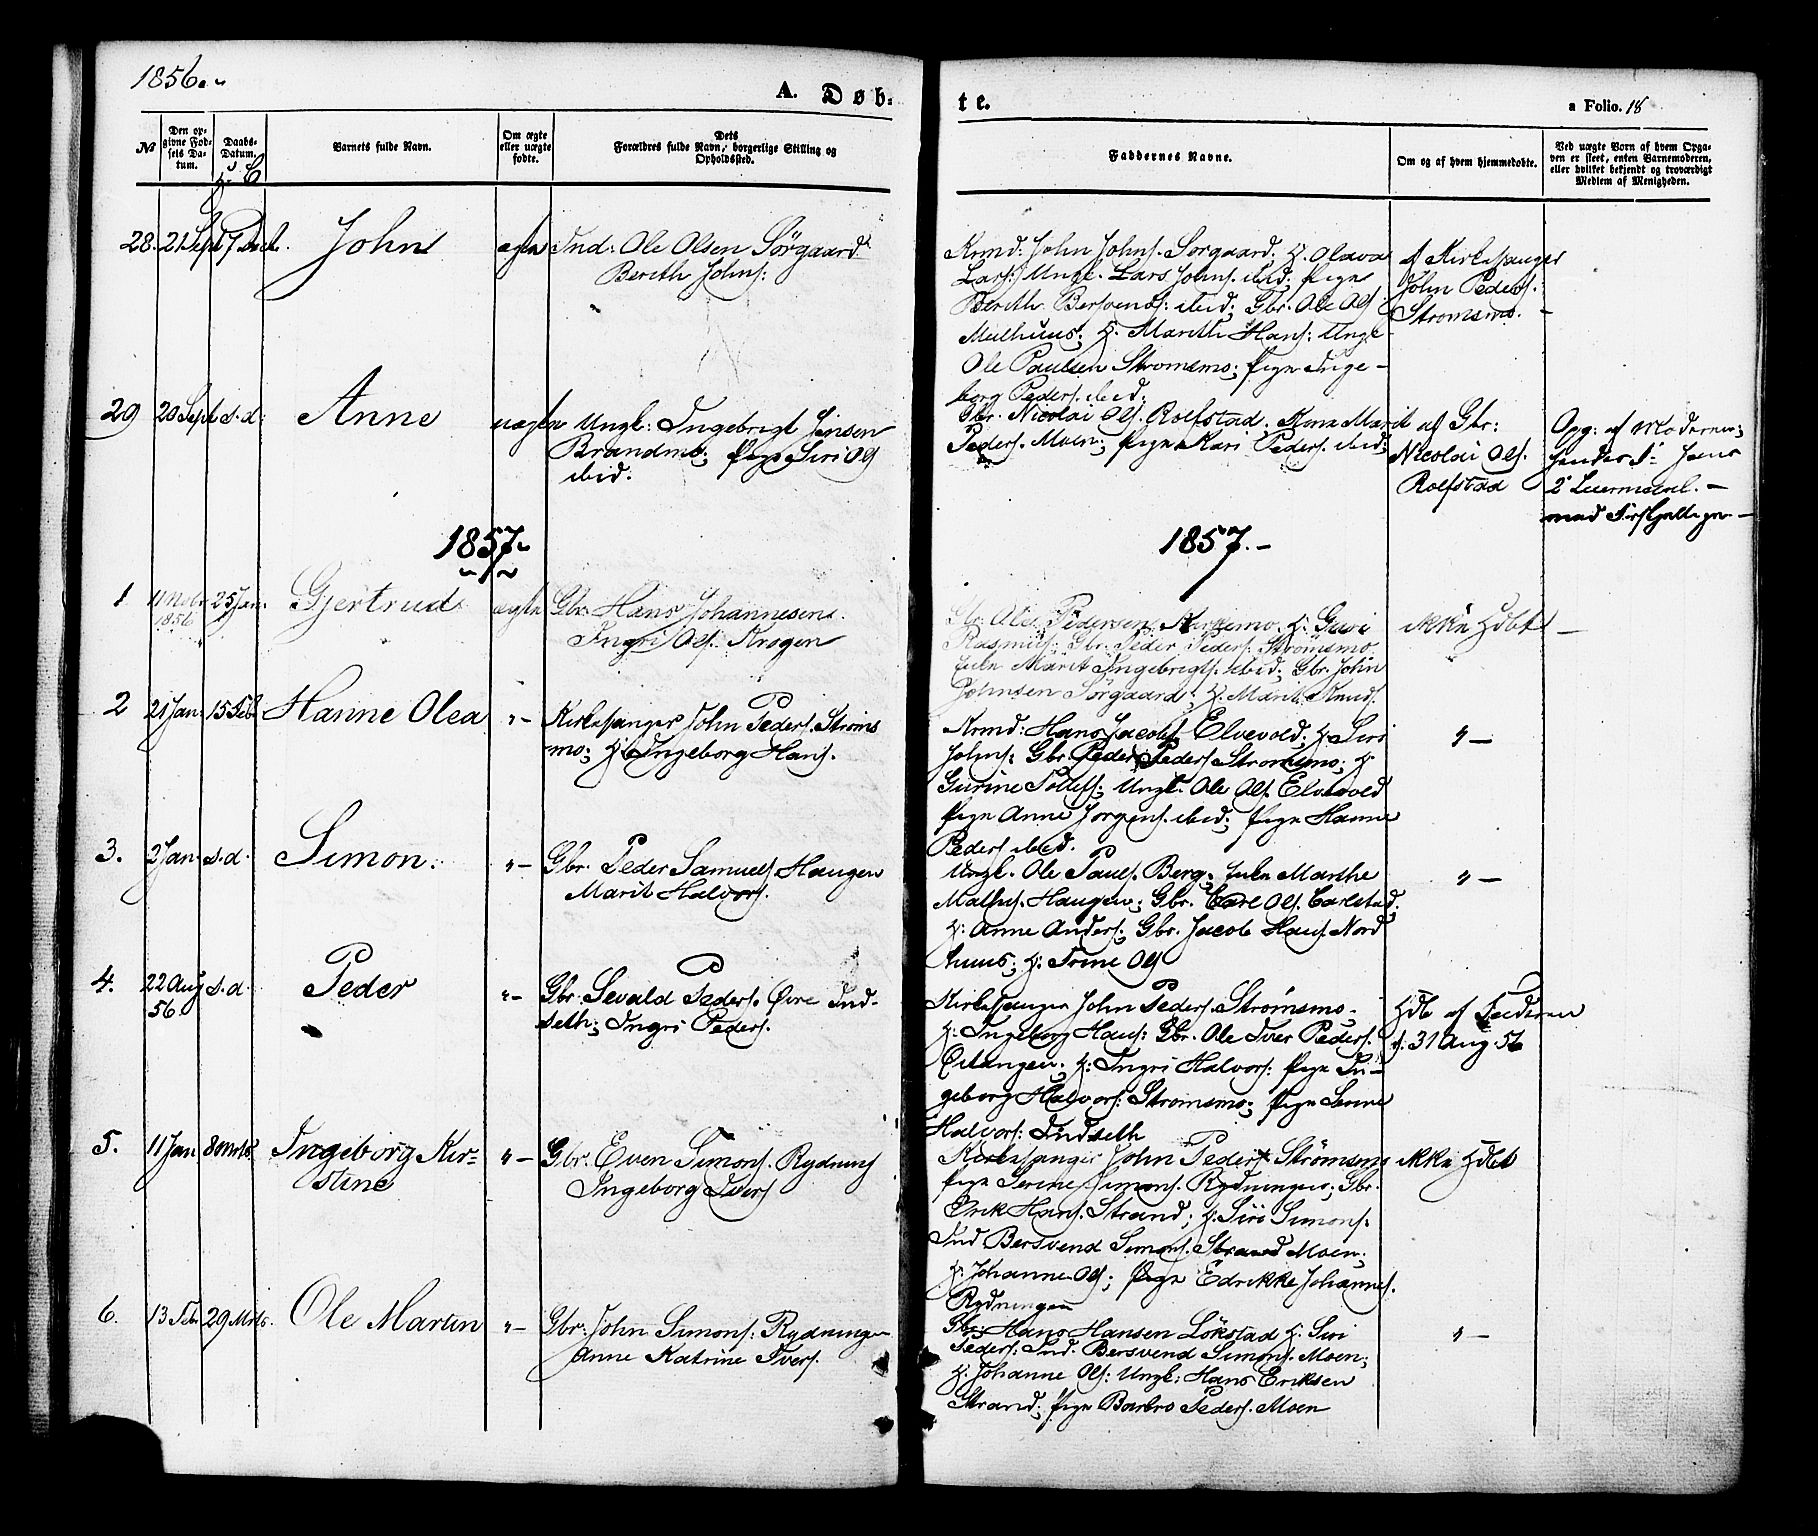 1856.
A. Døb-
te.
a Folio. 18
№
Den op-
givne Fød-
sels Da-
tum.
Daabs-
Datum.
Barnets fulde Navn.
Om ægte
eller uægte
fødte.
Dets
Forældres fulde Navn, borgerlige Stilling og
Opholdssted.
Faddernes Navne.
Om og af hvem hjemmedøbte.
Ved uægte Børn af hvem Opga-
ven er skeet, enten Barnemoderen,
eller hvilket bekjendt og troværdigt
Medlem af Menigheden.
28. 21 Sept
John
ægte Ind: Ole Olsen Sörgaard
Bereth Johns:
Krmd: John Johns. Sorgaard. H. Olava
Lars: Ungk. Lars Johns. ibid; Pige
Bereth Bersvends: ibid; Gbr. Ole Ols
Melhuus; H. Mareth Hans: Ungk
Ole Paulsen Stromsmo; Pige Inge-
borg Peders. ibid:
af Kirkesanger
John Peders:
Stromsmo. -
29 20 Sept s. d:
Anne
uægte Ungk: Ingebrigt Jensen
Brandmo; Pige Siri Ols
ibid.
Gbr. Nicolai Ols. Rolfstad. Kone Marit
Peders. Moen; Pige Kari Peders. ibid;
af Gbr:
Nicolai Ols.
Rolfstad
Opg: af Moderen;
hendes 1^ste hans
2^det Leiermaal. -
1857
1857.-
1 11 Nobr 1856 25 Jan:
Gjertrud
ægte Gbr: Hans Johannesen
Ingri Ols. Krogen
Gbr. Ole Pedersen H. Guri
Rasmus: Gbr. Peder Peders. Strömsmo
Enke Marit Ingebrigts. ibid; Gbr. John
Johnsen Sörgaard; H. Marit Knuds.
ikke Hdbt -
2 21 Jan: 15 Feb
Hanne Olea
"-
Kirkesanger John Peders. Ströms
mo; H. Ingeborg Hans.
Krmd: Hans Jacobs. Elvevold; H. Siri
Johns: Gbr. Peder Peders. Stromsmo; H.
Gurine Tollefs; Ungk. Ole Ols. Elvevold
Pige Anne Jorgens. ibid; Pige Hanne
Peders ibid.
"-
3. 2 Jan. s. d.
Simon.
"-
Gbr. Peder Samuels Haugen
Marit Halvors.
Ungk. Ole Pauls. Berg. Enke Marthe
Mathis. Haugen; Gbr. Carl Ols. Carlstad;
H: Anne Anders; Gbr. Jacob Hans. Nord
huus; H: Trine Ols
"-
4. 22 Aug 56. s. d.
Peder
"-
Gbr. Sevald Peders. Öire Ind-
seth; Ingri Peders.
Kirkesanger John Peders. Strömsmo.
H: Ingeborg Hans: Gbr. Ole Iver Peders.
H: Ingri Halvors: Pige In-
geborg Halvors: Stromsmo; Pige Serine
Halvors: Indseth
Hdb af Faderen
d. 31 Aug. 56
5. 11 Jan 8 Marts
Ingeborg Kir-
stine
"-
Gbr. Even Simons. Rydning
Ingeborg Ivers
Kirkesanger John Peders Strömsmo
Pige Serine Simons. Rydningen; Gbr.
Erik Hans. Strand; H. Siri Simons:
Ind Bersvend Simons. Moen;
H: Johanne Ols; Pige Edrikke Johannes.
Rydningen
ikke Hdbt
6. 13 Feb 29 Mrts.
Ole Martin
"-
Gbr: John Simons: Rydningen
Anne Katrine Ivers.
Gbr: Hans Hansen Lökstad H. Siri
Peders. Ind. Bersvend Simons. Moen;
H. Johanne Ols: Ungk: Hans Eriksen
Strand; Pige Barbro Peders. Moen
"-